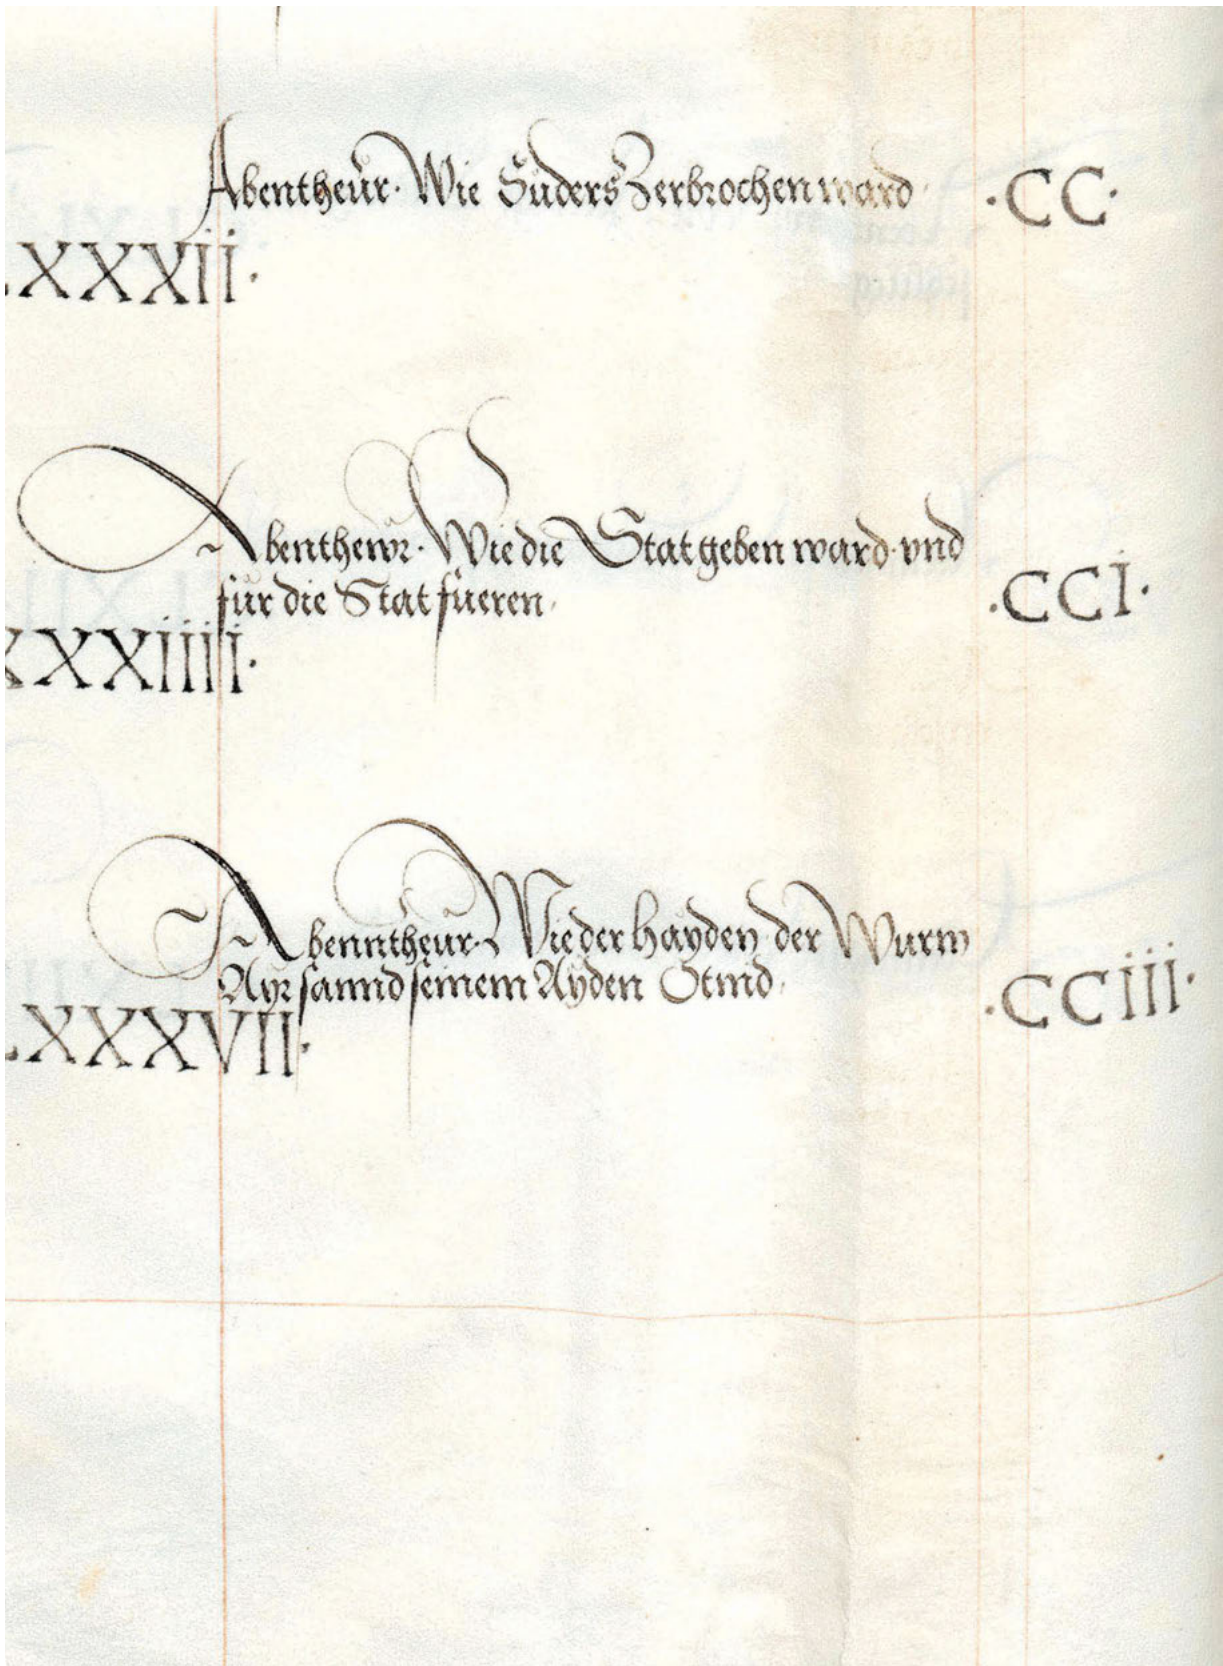 Abentheŭr· Wie Suders Zerbrochen ward· ·CC·
XXXII·
Abenthewr· Wie die Stat geben ward· vnd
für die Stat füeren· ·CCI·
XXXIIII·
Abenntheŭr· Wie der hayden der Wurm
Ayr sannd seinem Ayden Otnid· ·CCIII·
XXXVII·